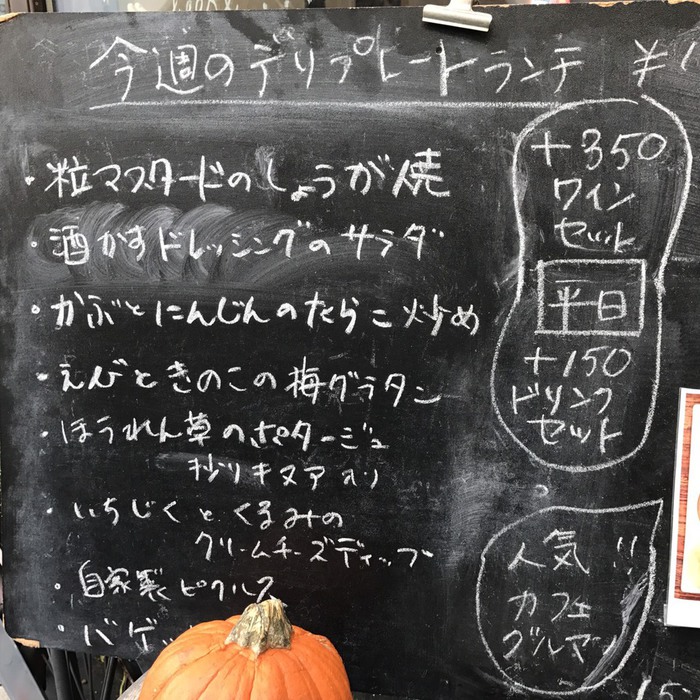 今週のデリプレートランチ ¥
・粒マスタードのしょうが焼
・酒かすドレッシングのサラダ
・かぶとにんじんのたらこ炒め
・えびときのこの梅グラタン
・ほうれん草のポタージュ
炒りキヌア入り
・いちじくとくるみの
クリームチーズディップ
・自家製ピクルス
・バゲッ
+350
ワイン
セット
平日
+150
ドリンク
セット
人気!!
カフェ
グルマン